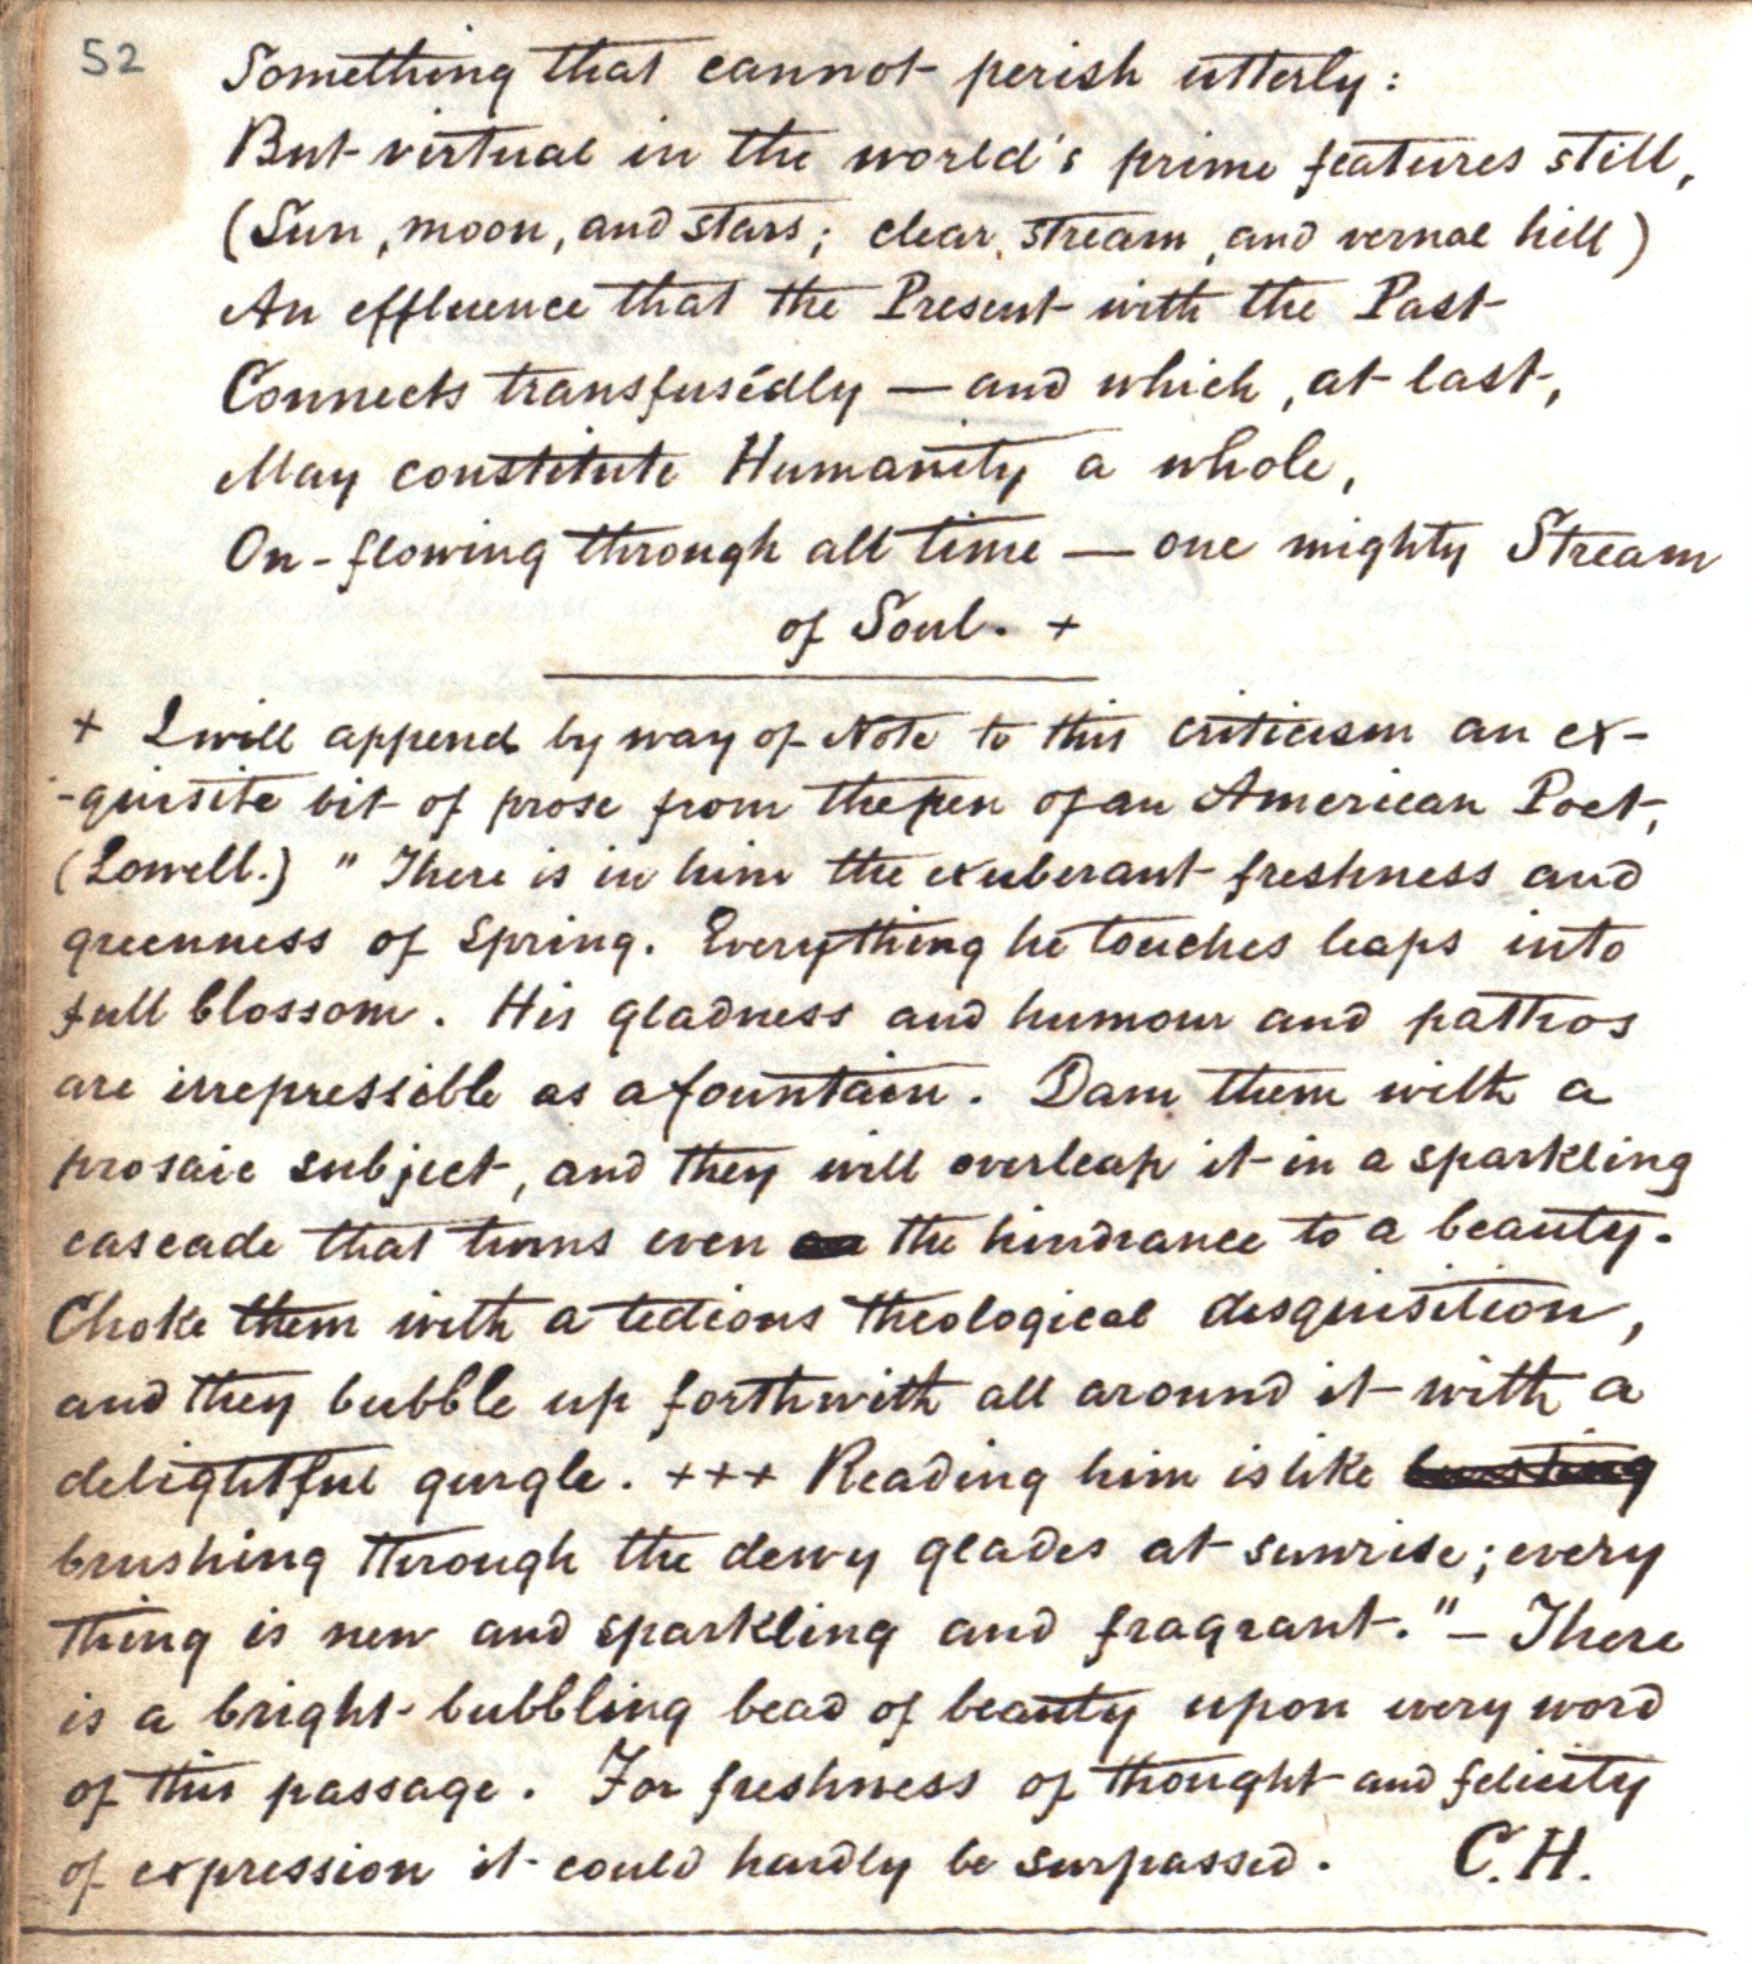 52
Something that cannot perish utterly:
But virtual in the world's prime features still,
(Sun, moon, and stars; clear, stream, and vernal hill)
An effluence that the Present with the Past
Connects transfusédly — and which, at last,
May constitute Humanity a whole,
On-flowing through all time — one mighty Stream
of Soul. +
+ I will append by way of Note to this criticism an ex-
-quisite bit of prose from the pen of an American Poet,
(Lowell.) "There is in him the exuberant freshness and
greenness of Spring. Everything he touches leaps into
full blossom. His gladness and humour and pathos
are irrepressible as a fountain. Dam them with a
prosaic subject, and they will overleap it in a sparkling
cascade that turns even the hindrance to a beauty.
Choke them with a tedious theological disquisition,
and they bubble up forthwith all around it with a
delightful gurgle. +++ Reading him is like bursting
brushing through the dewy glades at sunrise; every
thing is new and sparkling and fragrant." – There
is a bright bubbling bead of beauty upon every word
of this passage. For freshness of thought and felicity
of expression it could hardly be surpassed. C.H.